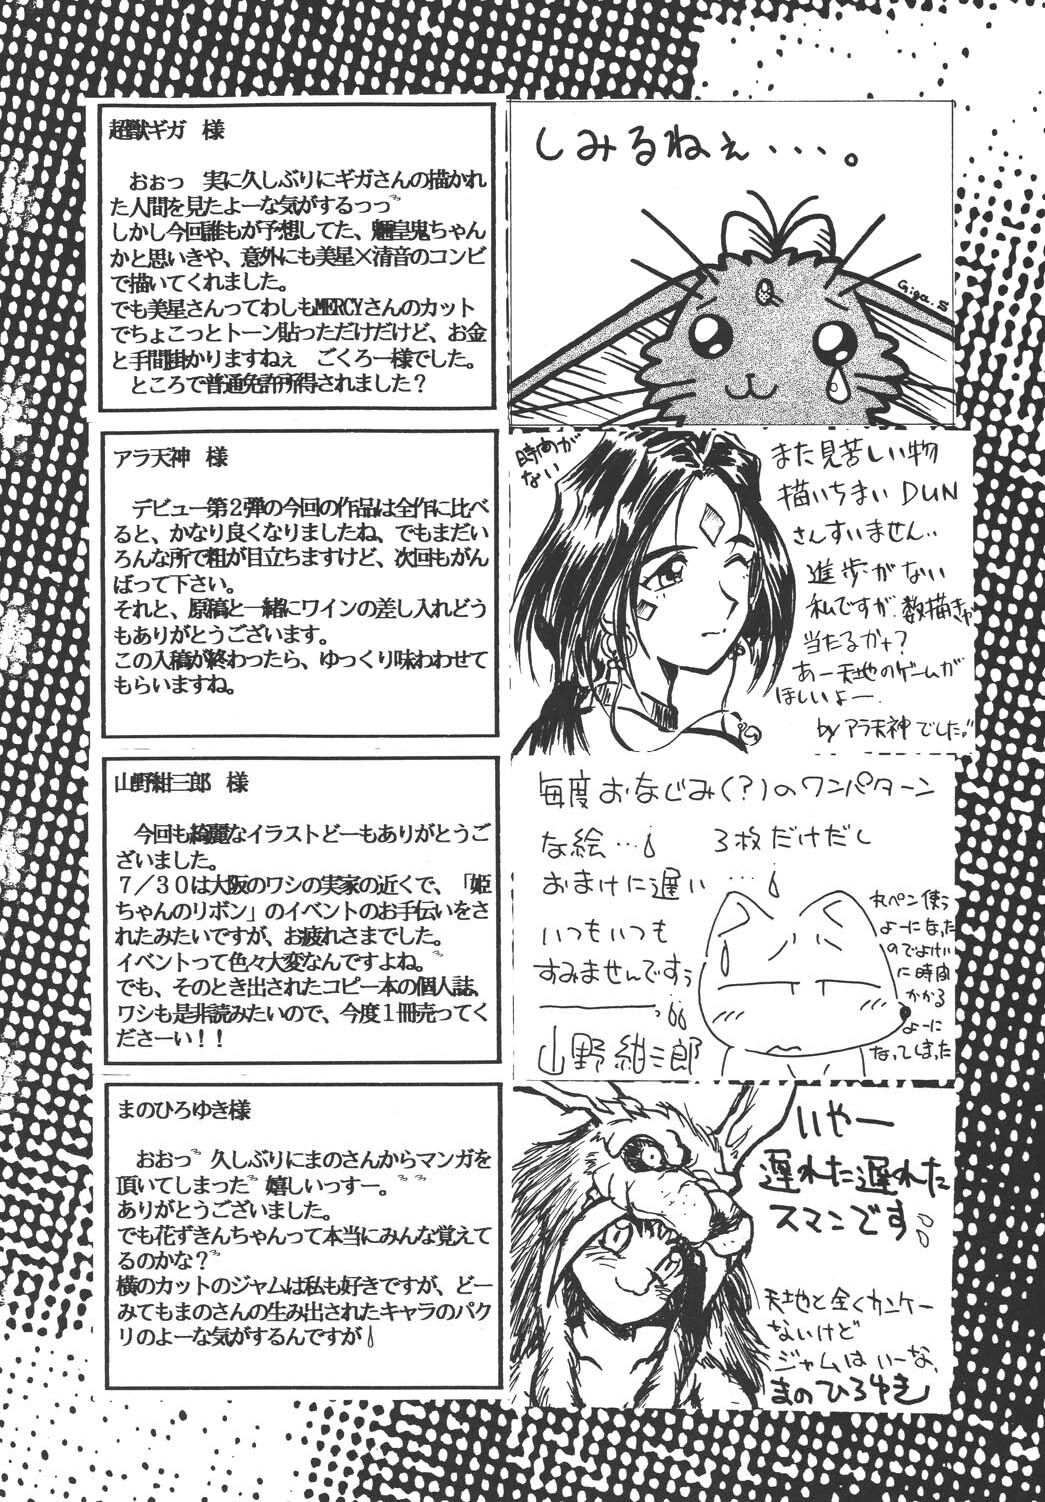 超獣ギガ　様
おぉっ　実に久しぶりにギガさんの描かれ
た人間を見たよーな気がするっっ
しかし今回誰もが予想してた、魎皇鬼ちゃん
かと思いきや、意外にも美星×清音のコンビ
で描いてくれました。
でも美星さんってわしもMERCYさんのカット
でちょこっとトーン貼っただけだけど、お金
と手間掛かりますねぇ　ごくろー様でした。
ところで普通免許所得されました？
しみるねぇ・・・。
Giga.S
アラ天神　様
デビュー第２弾の今回の作品は全作に比べ
ると、かなり良くなりましたね、でもまだい
ろんな所で粗が目立ちますけど、次回もがん
ばって下さい。
それと、原稿と一緒にワインの差し入れどう
もありがとうございます。
この入稿が終わったら、ゆっくり味わわせて
もらいますね。
時間が
ない
また見苦しい物
描いちまい DUN
さんすいません..
進歩がない
私ですが 数描きゃ
当たるかナ?
あー天地のゲームが
ほしいよー
by アラ天神でした
山野紺三郎　様
今回も綺麗なイラストどーもありがとうご
ざいました。
７／３０は大阪のワシの実家の近くで、「姫
ちゃんのリボン」のイベントのお手伝いをさ
れたみたいですが、お疲れさまでした。
イベントって色々大変なんですよね。
でも、そのとき出されたコピー本の個人誌、
ワシも是非読みたいので、今度１冊売ってく
ださーい！！
毎度おなじみ(?)のワンパターン
な絵…　3枚だけだし
おまけに遅い…
いつもいつも
すみませんですぅ
山野紺三郎
丸ペン使う
よーになった
のでよけい
に時間
かかる
よーに
なってしまった
まのひろゆき様
おおっ　久しぶりにまのさんからマンガを
頂いてしまった　嬉しいっすー。
ありがとうございました。
でも花ずきんちゃんって本当にみんな覚えて
るのかな？
横のカットのジャムは私も好きですが、どー
みてもまのさんの生み出されたキャラのパク
リのよーな気がするんですが
いやー
遅れた遅れた
スマンです
天地と全くカンケー
ないけど
ジャムはいーな、
まのひろゆき